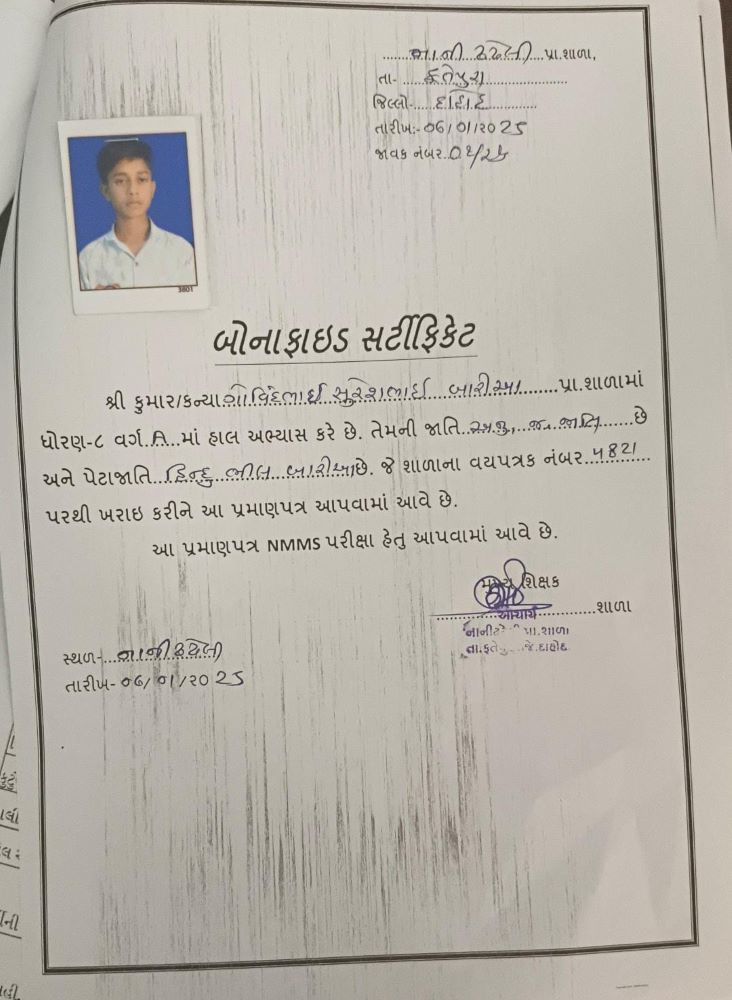 નાની ઢઢેલી પ્રા.શાળા,
તા- ફતેપુરા
જિલ્લો- દાહોદ
તારીખ:- ૦૬/૦૧/૨૦૨૫
જાવક નંબર.
3801
બોનાફાઇડ સર્ટીફિકેટ
શ્રી કુમાર/કન્યા ગોવિંદભાઈ સુરેશભાઈ બારીઆ પ્રા.શાળામાં
ધોરણ-૮ વર્ગ A માં હાલ અભ્યાસ કરે છે. તેમની જાતિ અનુ. જન. જાતિ છે
અને પેટાજાતિ હિન્દુ ભીલ બારીઆ છે. જે શાળાના વયપત્રક નંબર ૫821
પરથી ખરાઇ કરીને આ પ્રમાણપત્ર આપવામાં આવે છે.
આ પ્રમાણપત્ર NMMS પરીક્ષા હેતુ આપવામાં આવે છે.
મુખ્ય શિક્ષક
આચાર્ય શાળા
પ્રા.શાળા
જી.દાહોદ
સ્થળ- નાની ઢઢેલી
તારીખ- ૦૬/૦૧/૨૦૨૫